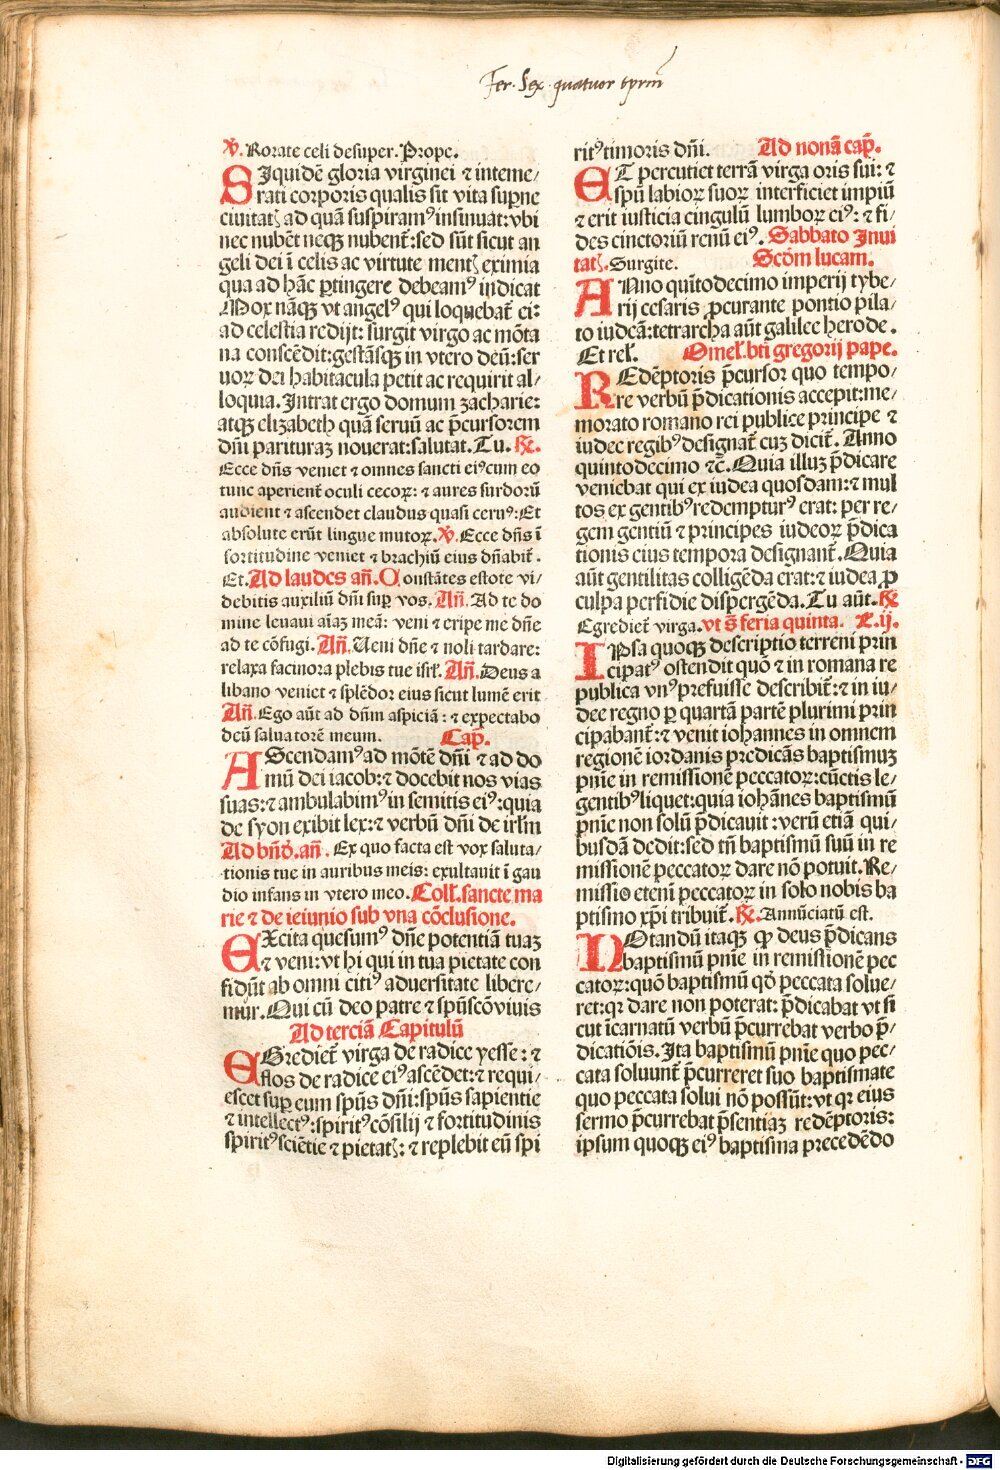 Fer. Sex. quatuor tprm̄
℣. Rorate celi desuper. Prope.
SIquidē gloria virginei ⁊ inteme/
rati corporis qualis sit vita supne
ciuitatꝭ ad quā suspiramꝰ insinuat: vbi
nec nubēt neqꝫ nubent̄: sed sūt sicut an
geli dei ī celis ac virtute mentꝭ eximia
qua ad hāc ꝑtingere debeamꝰ indicat
Mox nāqꝫ vt angelꝰ qui loquebat̄ ei:
ad celestia redijt: surgit virgo ac mōta
na conscēdit: gestāsqꝫ in vtero deū: ser
uoꝝ dei habitacula petit ac requirit al/
loquia. Intrat ergo domum zacharie:
atqꝫ elizabeth quā seruū ac p̄cursorem
dn̄i parituraꝫ nouerat: salutat. Tu. ℟.
Ecce dn̄s veniet ⁊ omnes sancti eiꝰcum eo
tunc aperient̄ oculi cecoꝝ: ⁊ aures surdorū
audient ⁊ ascendet claudus quasi ceruꝰ: Et
absolute erūt lingue mutoꝝ. ℣. Ecce dn̄s ī
fortitudine veniet ⁊ brachiū eius dn̄abit̄.
Et. Ad laudes an̄. Constātes estote vi/
debitis auxiliū dn̄i sup̱ vos. An̄. Ad te do
mine leuaui aīaꝫ meā: veni ⁊ eripe me dn̄e
ad te cōfugi. An̄. Ueni dn̄e ⁊ noli tardare:
relaxa facinora plebis tue isrl̄. An̄. Deus a
libano veniet ⁊ splēdor eius sicut lumē erit
An̄. Ego aūt ad dn̄m aspiciā: ⁊ expectabo
deū saluatorē meum. Cap̄.
AScendamꝰ ad mōtē dn̄i ⁊ ad do
mū dei iacob: ⁊ docebit nos vias
suas: ⁊ ambulabimꝰ in semitis eiꝰ: quia
de syon exibit lex: ⁊ verbū dn̄i de irl̄m
Ad bn̄d̄. an̄. Ex quo facta est vox saluta/
tionis tue in auribus meis: exultauit ī gau
dio infans in vtero meo. Coll̄. sancte ma
rie ⁊ de ieiunio sub vna cōclusione.
EXcita quesumꝰ dn̄e potentiā tuaꝫ
⁊ veni: vt hi qui in tua pietate con
fidūt ab omni citiꝰ aduersitate libere/
mūr. Qui cū deo patre ⁊ spūscō viuis
Ad terciā Capitulū
EGrediet̄ virga de radice yesse: ⁊
flos de radice eiꝰ ascēdet: ⁊ requi/
escet sup̱ eum spūs dn̄i: spūs sapientie
⁊ intellectꝰ: spiritꝰ cōsilij ⁊ fortitudinis
spiritꝰ sciētie ⁊ pietatꝭ: ⁊ replebit eū spi
ritꝰ timoris dn̄i. Ad nonā cap̄.
ET percutiet terrā virga oris sui: ⁊
spū labioꝝ suoꝝ interficiet impiū
⁊ erit iusticia cingulū lumboꝝ eiꝰ: ⁊ fi/
des cinctoriū renū eiꝰ. Sabbato Inui
tatꝭ. Surgite. Scd̄m lucam.
ANno quītodecimo imperij tybe/
rij cesaris ꝓcurante pontio pila/
to iudeā: tetrarcha aūt galilee herode.
Et rel̄. Omel̄. bti gregorij pape.
REdēptoris p̄cursor quo tempo/
re verbū p̄dicationis accepit: me/
morato romano rei publice principe ⁊
iudee regibꝰ designat̄ cuꝫ dicit̄. Anno
quintodecimo ⁊c̄. Quia illuꝫ p̄dicare
veniebat qui ex iudea quosdam: ⁊ mul
tos ex gentibꝰ redempturꝰ erat: per re/
gem gentiū ⁊ principes iudeoꝝ p̄dica
tionis eius tempora designant̄. Quia
aūt gentilitas colligēda erat: ⁊ iudea ꝓ
culpa perfidie dispergēda. Tu aūt. ℟
Egrediet̄ virga. vt s̄ feria quinta. L. ij.
IPsa quoqꝫ descriptio terreni prin
cipatꝰ ostendit quō ⁊ in romana re
publica vnꝰ prefuisse describit̄: ⁊ in iu/
dee regno ꝑ quartā partē plurimi prin
cipabant̄: ⁊ venit iohannes in omnem
regionē iordanis predicās baptismuꝫ
pn̄ie in remissionē peccatoꝝ: cūctis le/
gentibꝰ liquet: quia iohānes baptismū
pn̄ie non solū p̄dicauit: verū etiā qui/
busdā dedit: sed tn̄ baptismū suū in re
missionē peccatoꝝ dare nō potuit. Re/
missio eteni peccatoꝝ in solo nobis ba
ptismo xp̄i tribuit̄. ℟. Annūciatū est.
NOtandū itaqꝫ ꝙ deus p̄dicans
baptismū pn̄ie in remissionē pec
catoꝝ: quō baptismū qd̄ peccata solue/
ret: qꝛ dare non poterat: p̄dicabat vt si
cut īcarnatū verbū p̄currebat verbo p̄/
dicatiōis. Ita baptismū pn̄ie quo pec/
cata soluunt̄ p̄curreret suo baptismate
quo peccata solui nō possūt: vt qꝛ eius
sermo p̄currebat p̄sentiaꝫ redēptoris:
ipsum quoqꝫ eiꝰ baptisma precedēdo
Digitalisierung gefördert durch die Deutsche Forschungsgemeinschaft - DFG